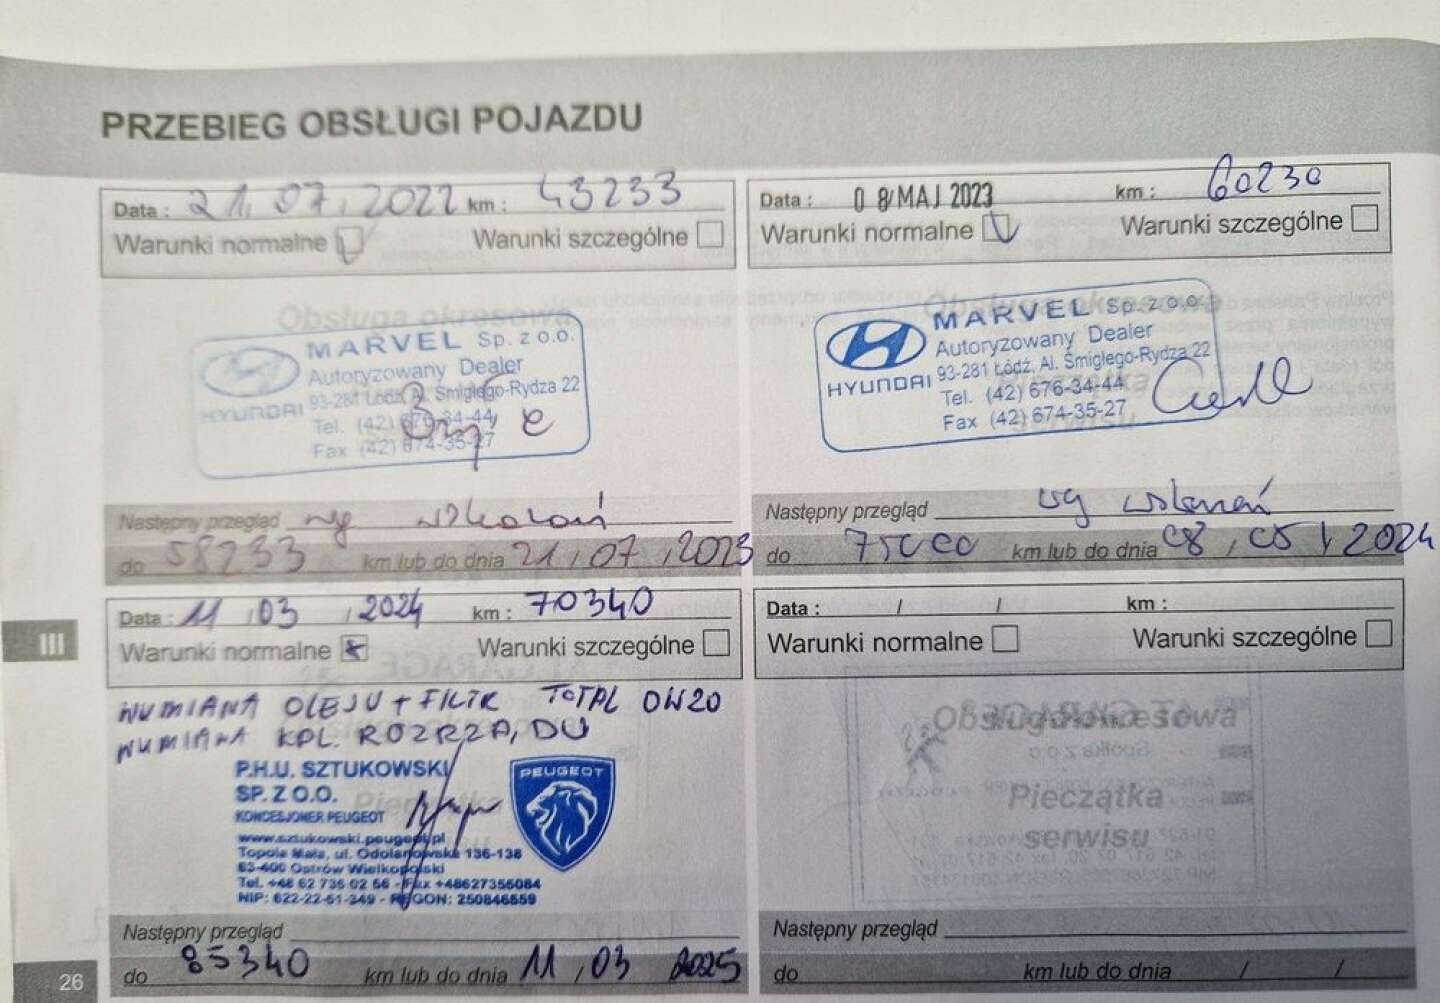 PRZEBIEG OBSŁUGI POJAZDU
Data : 21.07.2022 km : 43233
Warunki normalne Warunki szczególne
Obsługa okresowa
MARVEL Sp. z o.o.
Autoryzowany Dealer
HYUNDAI 93-281 Łódź, Al. Śmigłego-Rydza 22
Tel. (42) 676-34-44
Fax (42) 674-35-27
Następny przegląd wg wskazań
do 58233 km lub do dnia 21/07/2023
Data : 08 MAJ 2023 km : 60230
Warunki normalne Warunki szczególne
Obsługa okresowa
MARVEL Sp. z o.o.
Autoryzowany Dealer
HYUNDAI 93-281 Łódź, Al. Śmigłego-Rydza 22
Tel. (42) 676-34-44
Fax (42) 674-35-27
Następny przegląd wg wskazań
do 75000 km lub do dnia 08/05/2024
III
Data : 11/03/2024 km : 70340
Warunki normalne Warunki szczególne
WYMIANA OLEJU + FILTR TOTAL 0W20
WYMIANA KPL. ROZRZĄDU
P.H.U. SZTUKOWSKI
SP. Z O.O.
KONCESJONER PEUGEOT
PEUGEOT
www.sztukowski.peugeot.pl
Topola Mała, ul. Odolanowska 136-138
63-400 Ostrów Wielkopolski
Tel. +48 62 736 02 56 - Fax +48627355084
NIP: 622-22-61-349 - REGON: 250846559
Następny przegląd
do 85340 km lub do dnia 11/03 2025
Data : / / km :
Warunki normalne Warunki szczególne
Obsługa okresowa
Pieczątka
serwisu
Następny przegląd
do km lub do dnia / /
26